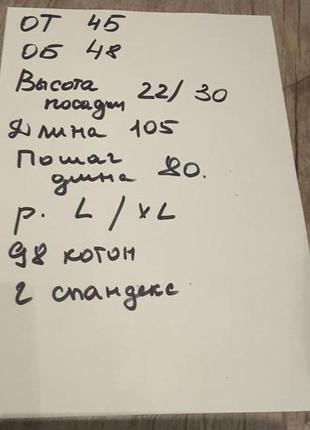 ОТ 45
ОБ 48
Высота
посадки 22/30
Длина 105
Пошаг
длина 80.
р. L / XL
98 котон
2 спандекс